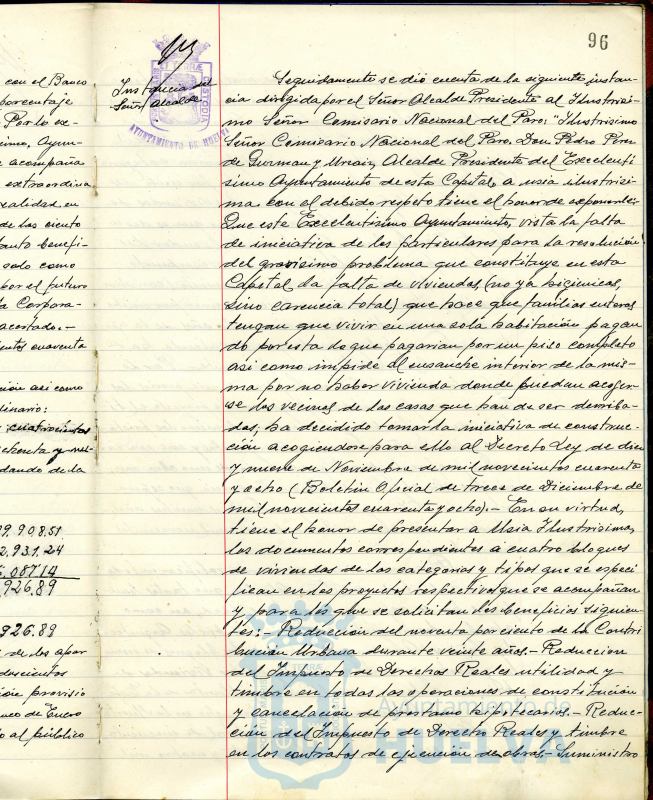 96
con el Banco
porcentaje
Por lo ex-
simo, Ayun-
e acompaña
extraordina
realidad, en
de los ciento
tanto benefi-
solo como
por el futuro
la Corpora-
acertado.-
cuarenta
ción así como
dinario:
cuatrocientos
ochenta y
dando de la
99.908.51
2.931.24
.087.14
.926.89
926.89
de los apor
doscientos
ción provisio
de Enero
al público
Instancia del
Señor Alcalde
CUSTODIA
AYUNTAMIENTO DE HUELVA
Seguidamente se dió cuenta de la siguiente instan-
cia dirigida por el Señor Alcalde Presidente al Ilustrísi-
mo Señor Comisario Nacional del Paro: "Ilustrísimo
Señor Comisario Nacional del Paro. Don Pedro Pérez
de Guzman y Urzaiz, Alcalde Presidente del Excelentí
simo Ayuntamiento de esta Capital, a usia ilustrísi-
ma con el debido respeto tiene el honor de exponerle:
Que este Excelentísimo Ayuntamiento, vista la falta
de iniciativa de los particulares para la resolución
del gravísimo problema que constituye en esta
Capital la falta de viviendas, (no ya higienicas,
sino carencia total) que hace que familias enteras
tengan que vivir en una sola habitación pagan
do por esta lo que pagarian por un piso completo
asi como impide el ensanche interior de la mis-
ma por no haber vivienda donde puedan acoger-
se los vecinos de las casas que han de ser derriba-
das, ha decidido tomar la iniciativa de construc-
ción acogiendose para ello al Decreto Ley de diez
y nueve de Noviembre de mil novecientos cuarenta
y ocho (Boletin Oficial de trece de Diciembre de
mil novecientos cuarenta y ocho).- En su virtud,
tiene el honor de presentar a Usia Ilustrisima,
los documentos correspondientes a cuatro bloques
de viviendas de las categorias y tipos que se especi
fican en los proyectos respectivos que se acompañan
y para los que se solicitan los beneficios siguien-
tes:- Reducción del noventa por ciento de la Contri
bución Urbana durante veinte años.- Reduccion
del Impuesto de Derechos Reales utilidad y
timbre en todas las operaciones de constitución
y cancelación de préstamo hipotecarios.- Reduc-
ción del Impuesto de Derecho Reales y timbre
en los contratos de ejecución de obras.- Suministro
Ayuntamiento de
HUELVA